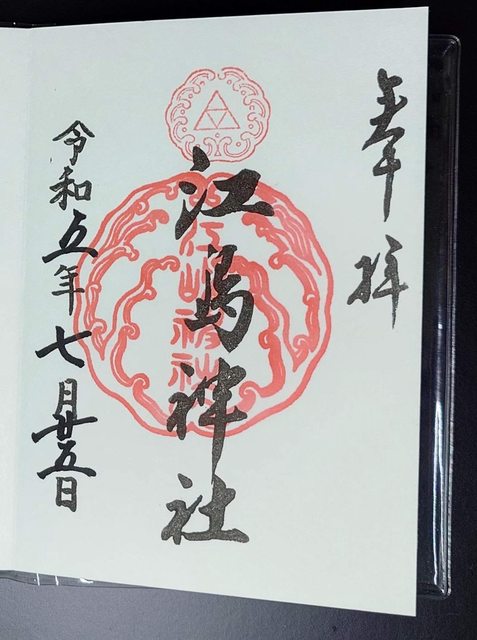 奉拝
江島神社
江島神社
令和五年七月廿五日